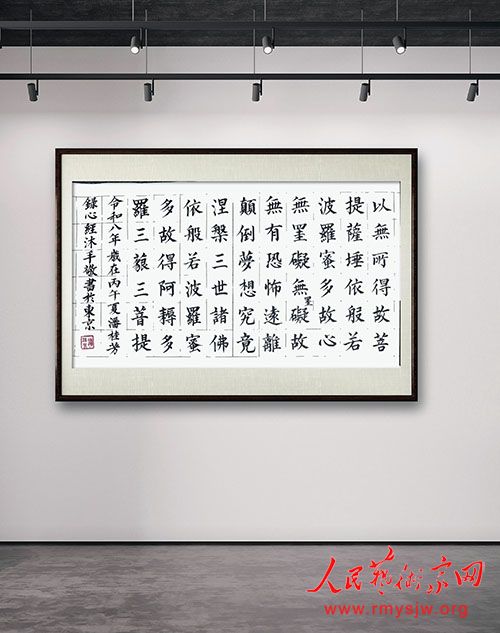 以無所得故菩
提薩埵依般若
波羅蜜多故心
無罣礙無罣礙故
無有恐怖遠離
顛倒夢想究竟
涅槃三世諸佛
依般若波羅蜜
多故得阿耨多
羅三藐三菩提
令和八年歲在丙午夏潘桂芳
錄心經沐手敬書於東京
人民藝術家网
www.rmysjw.org